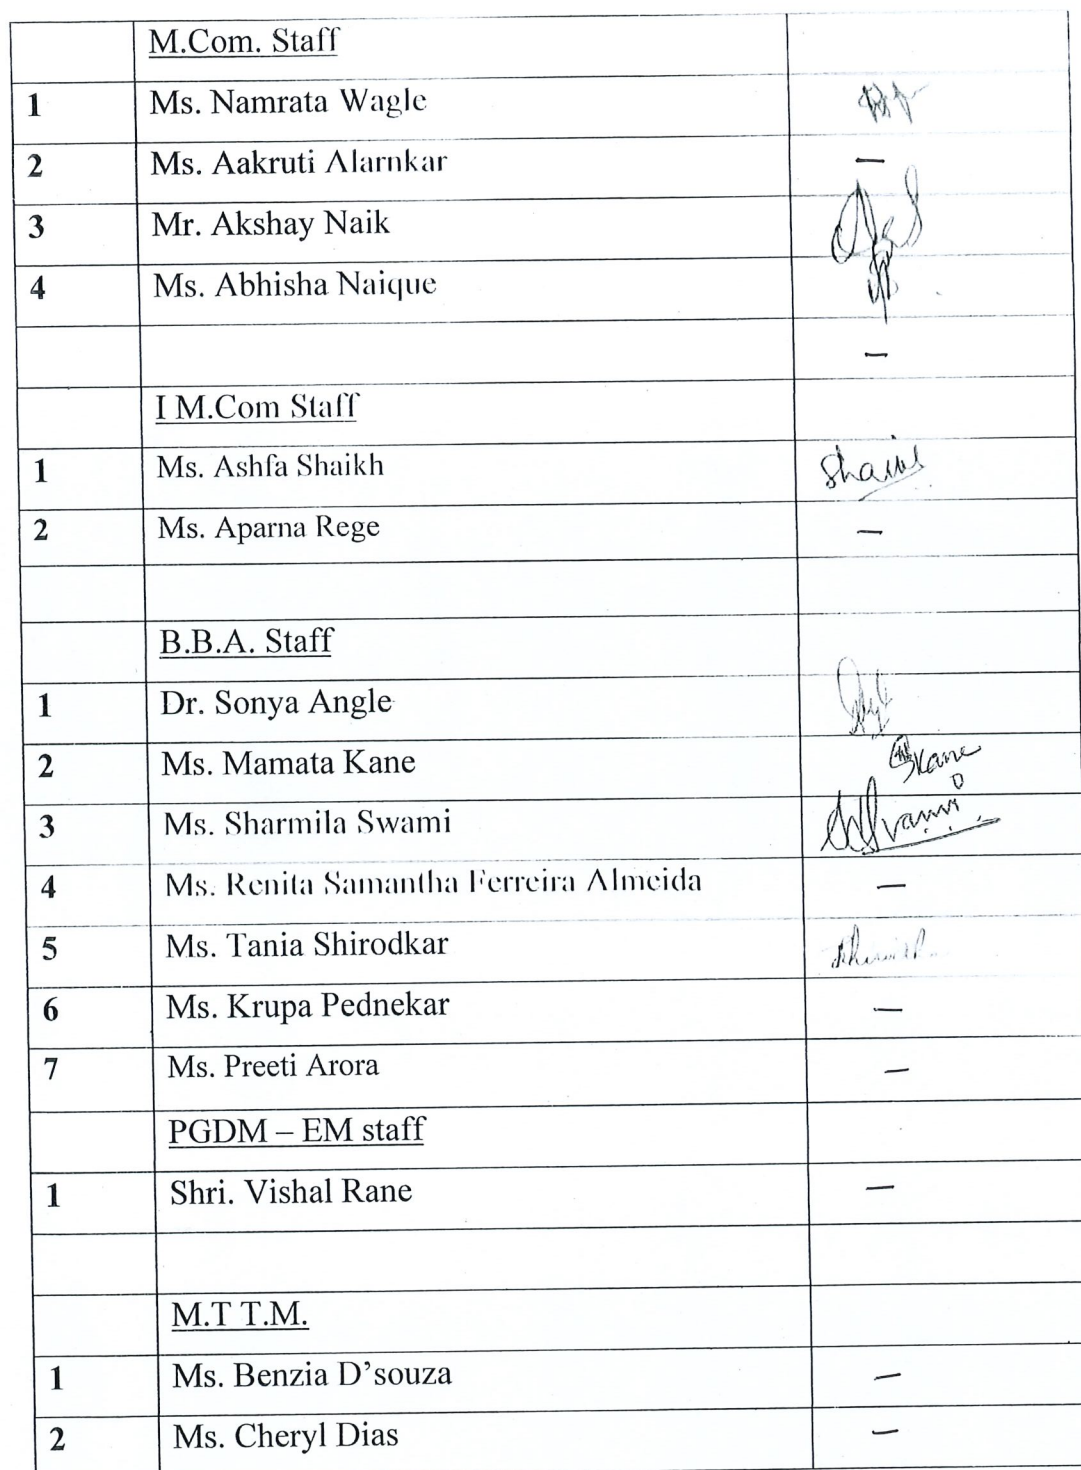 M.Com. Staff
1 Ms. Namrata Wagle
2 Ms. Aakruti Alarnkar —
3 Mr. Akshay Naik
4 Ms. Abhisha Naique
—
I M.Com Staff
1 Ms. Ashfa Shaikh
2 Ms. Aparna Rege —
B.B.A. Staff
1 Dr. Sonya Angle
2 Ms. Mamata Kane Kane
3 Ms. Sharmila Swami
4 Ms. Renita Samantha Ferreira Almeida —
5 Ms. Tania Shirodkar
6 Ms. Krupa Pednekar —
7 Ms. Preeti Arora —
PGDM – EM staff
1 Shri. Vishal Rane —
M.T T.M.
1 Ms. Benzia D'souza —
2 Ms. Cheryl Dias —